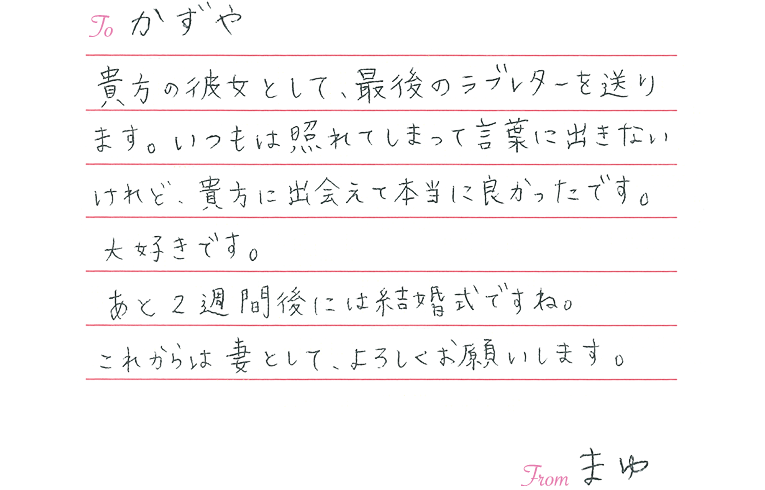 To かずや
貴方の彼女として、最後のラブレターを送り
ます。いつもは照れてしまって言葉に出きない
けれど、貴方に出会えて本当に良かったです。
大好きです。
あと2週間後には結婚式ですね。
これからは妻として、よろしくお願いします。
From まゆ